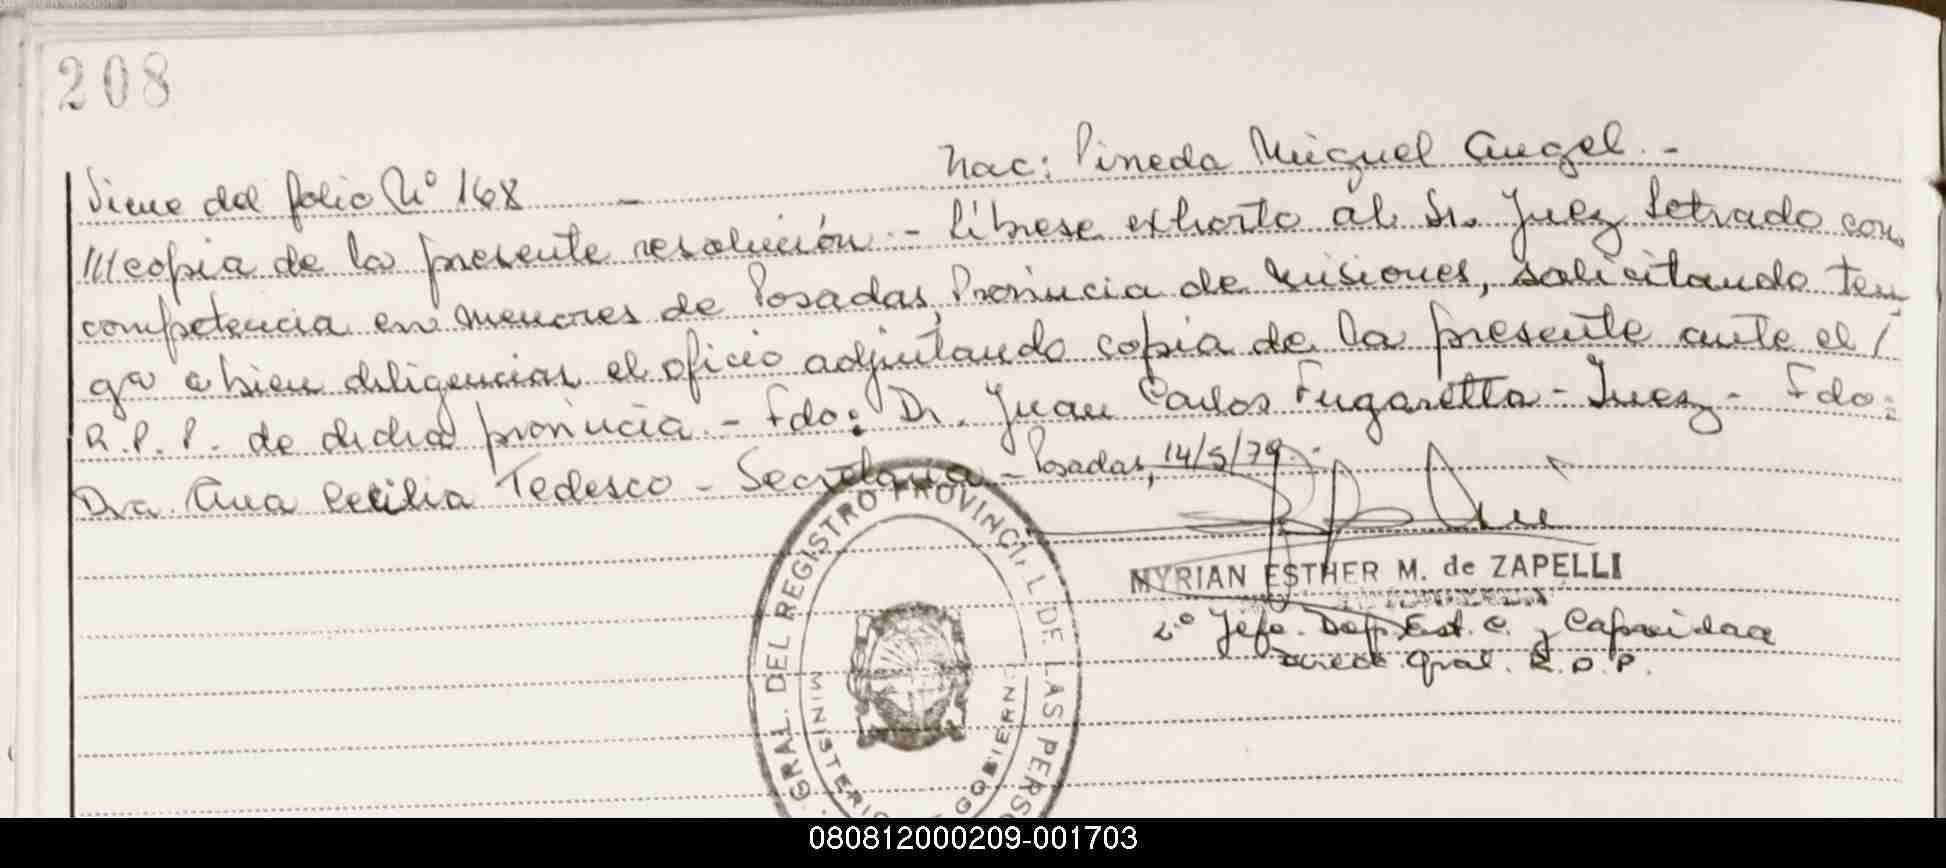 208
Viene del folio Nº 168 - Nac: Pineda Miguel Angel. -
///copia de la presente resolución. - Líbrese exhorto al Sr. Juez Letrado con
competencia en menores de Posadas, Provincia de Misiones, solicitando ten
ga a bien diligenciar el oficio adjuntando copia de la presente ante el /
R.P.P. de dicha provincia. - Fdo: Dr. Juan Carlos Fugaretta - Juez - Fdo:
Dra. Ana Cecilia Tedesco - Secretaria - Posadas, 14/5/79.-
MYRIAN ESTHER M. de ZAPELLI
2º Jefe. Dep. Est. C. y Capacidad
Direcc. Gral. R.P.P.
GRAL. DEL REGISTRO PROVINCI L DE LAS PERSO
MINISTERIO GOBIERN
080812000209-001703